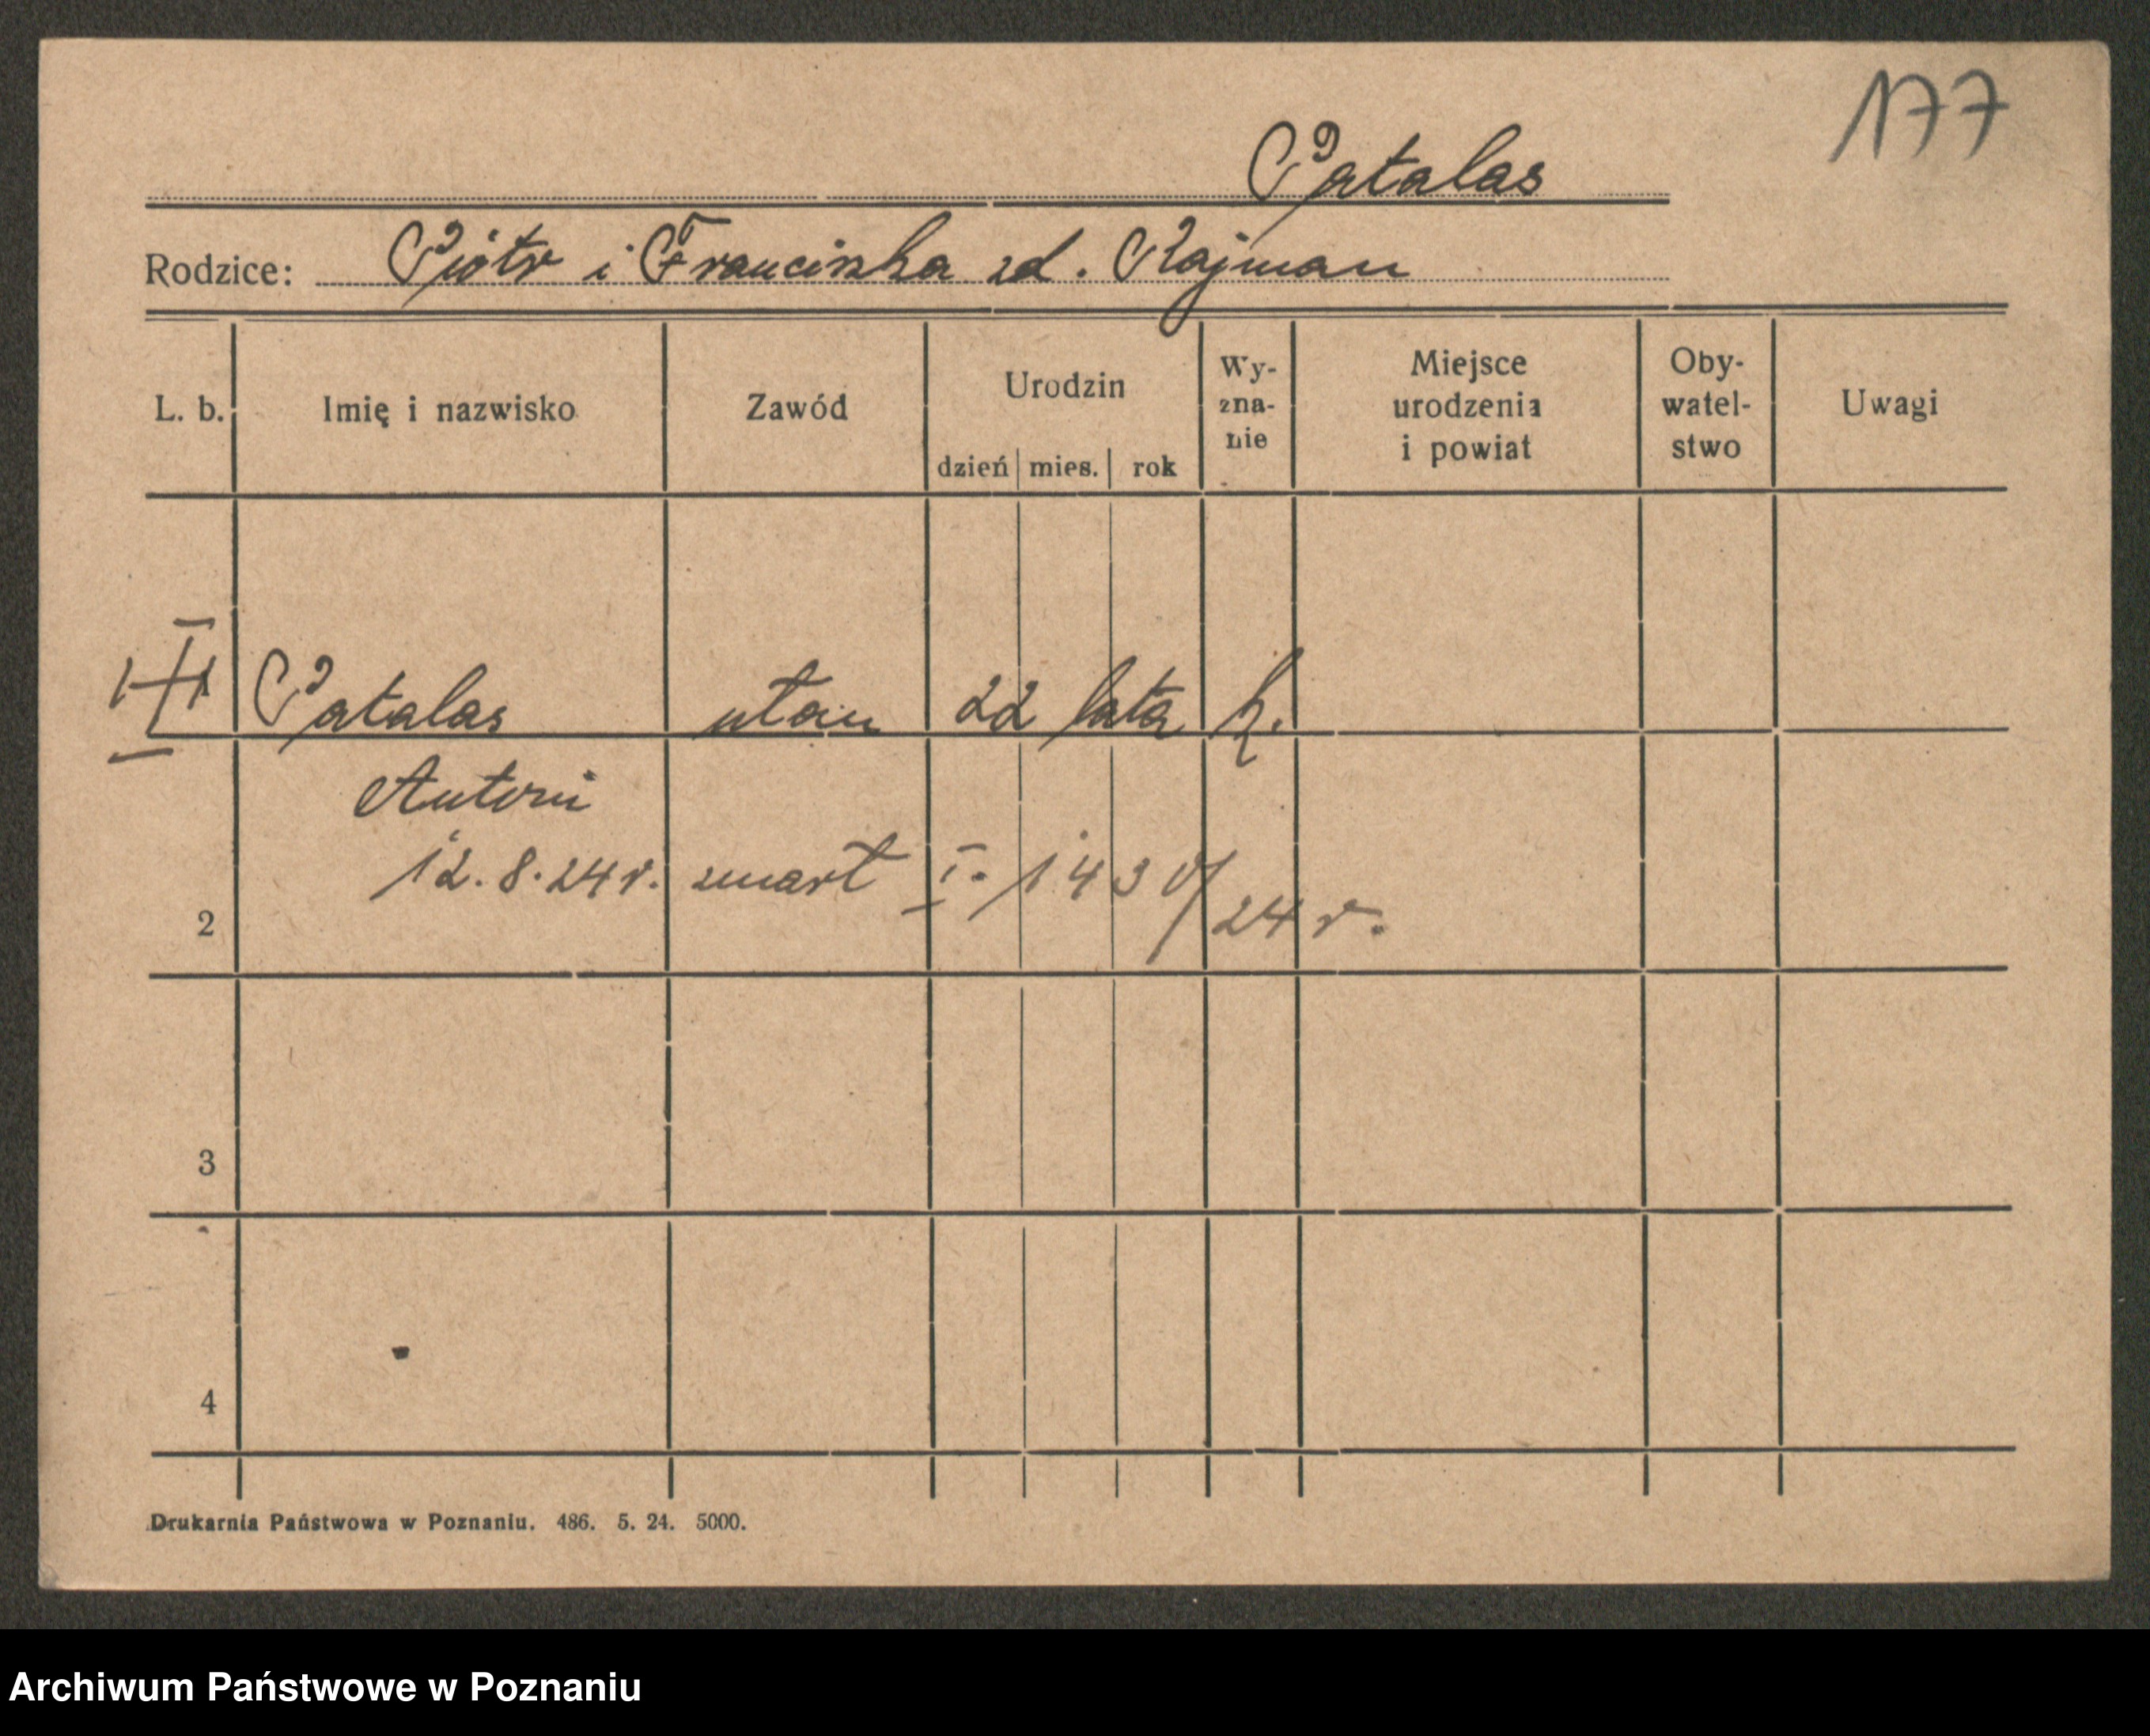 177
Patalas
Rodzice: Piotr i Franciszka zd. Rajman
L. b. Imię i nazwisko Zawód Urodzin dzień mies. rok Wy-zna-nie Miejsce urodzenia i powiat Oby-watel-stwo Uwagi
1 Patalas ułan 22 lata k.
Antoni
12.8.24 r. zmarł I. 1430/24 r.
2
3
4
Drukarnia Państwowa w Poznaniu. 486. 5. 24. 5000.
Archiwum Państwowe w Poznaniu